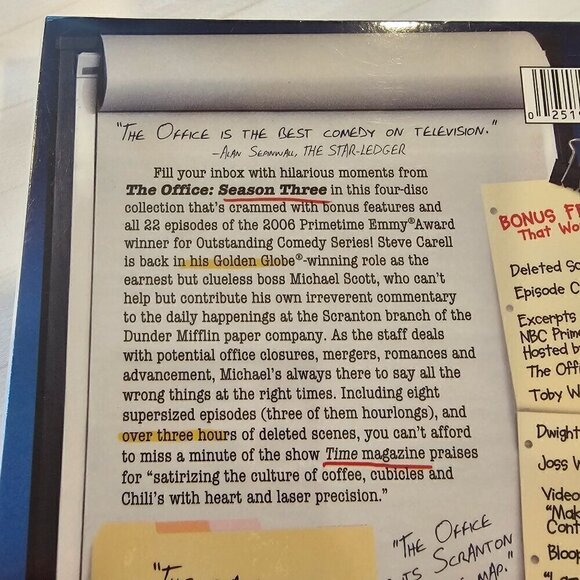 0 251
"THE OFFICE IS THE BEST COMEDY ON TELEVISION."
-ALAN SEPINWALL, THE STAR-LEDGER
Fill your inbox with hilarious moments from
The Office: Season Three in this four-disc
collection that's crammed with bonus features and
all 22 episodes of the 2006 Primetime Emmy® Award
winner for Outstanding Comedy Series! Steve Carell
is back in his Golden Globe®-winning role as the
earnest but clueless boss Michael Scott, who can't
help but contribute his own irreverent commentary
to the daily happenings at the Scranton branch of the
Dunder Mifflin paper company. As the staff deals
with potential office closures, mergers, romances and
advancement, Michael's always there to say all the
wrong things at the right times. Including eight
supersized episodes (three of them hourlongs), and
over three hours of deleted scenes, you can't afford
to miss a minute of the show Time magazine praises
for "satirizing the culture of coffee, cubicles and
Chili's with heart and laser precision."
BONUS
That
Deleted
Episode
Excerpts
NBC
Hosted
The
Toby
Dwight
Joss
Video
"THE OFFICE
SCRANTON
MAP."
"THE